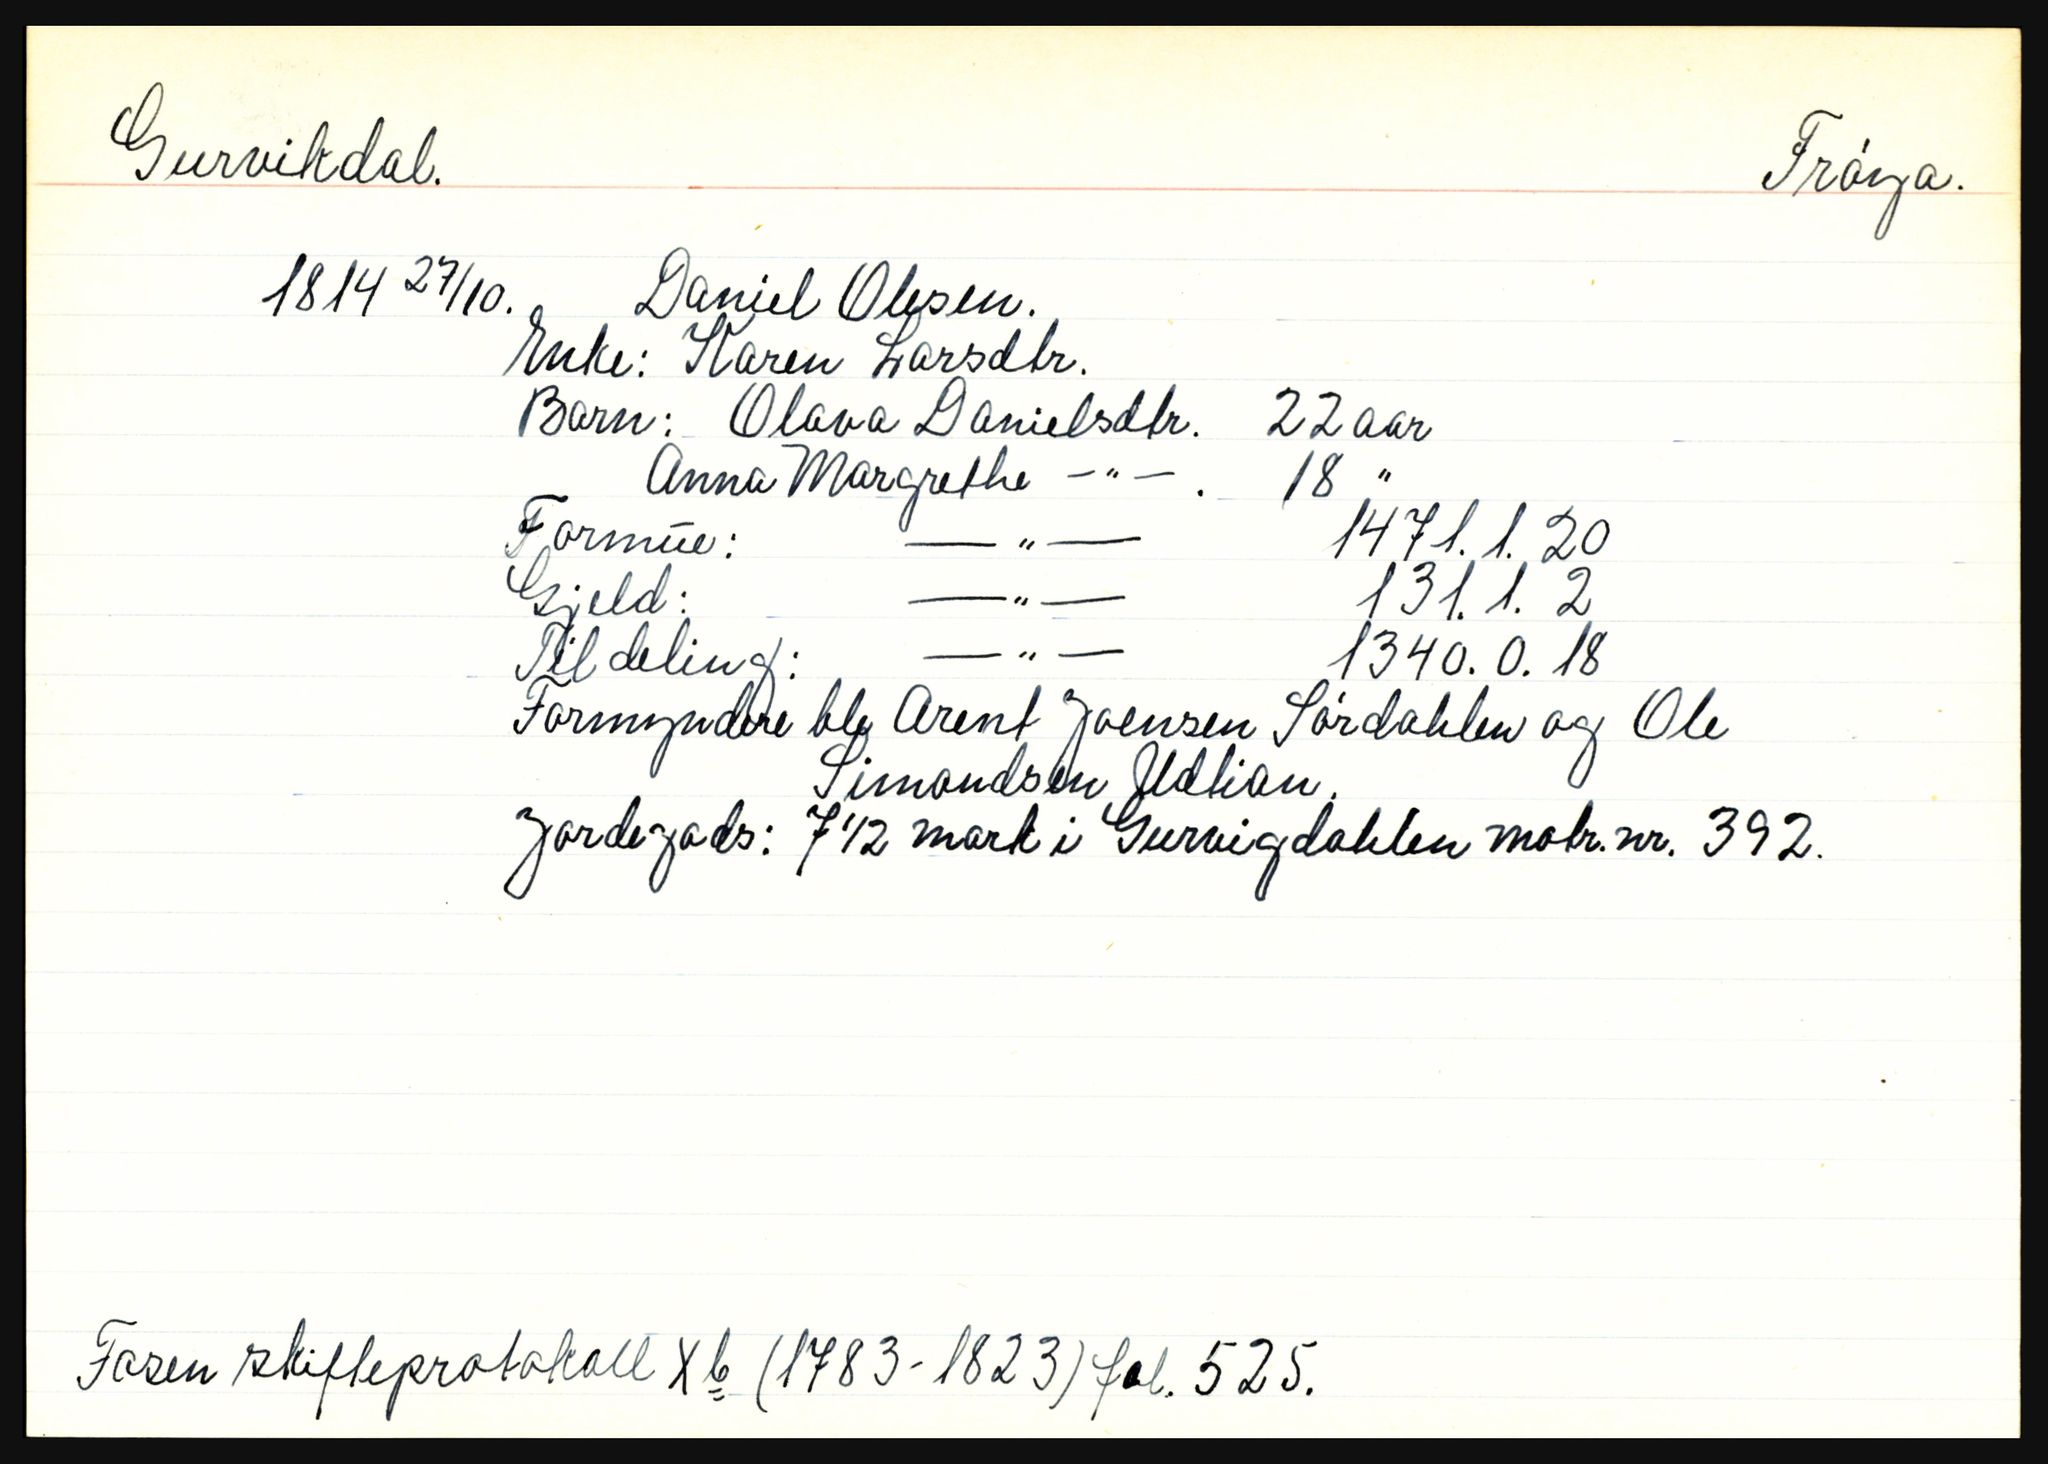 Gurvikdal. Frøya.
1814 27/10. Daniel Olesen.
Enke: Karen Larsdtr.
Barn: Olava Danielsdtr. 22 aar
Anna Margrethe —"— . 18 "
Formue: —"— 1471. 1. 20
Gjeld: —"— 131. 1. 2
Til deling: —"— 1340. 0. 18
Formyndere ble Arent Joensen Sørdahlen og Ole
Simondsen Udtian.
Jordegods: 7 1/2 mark i Gurvigdahlen matr. nr. 392.
Fosen skifteprotokoll X b (1783-1823) fol. 525.